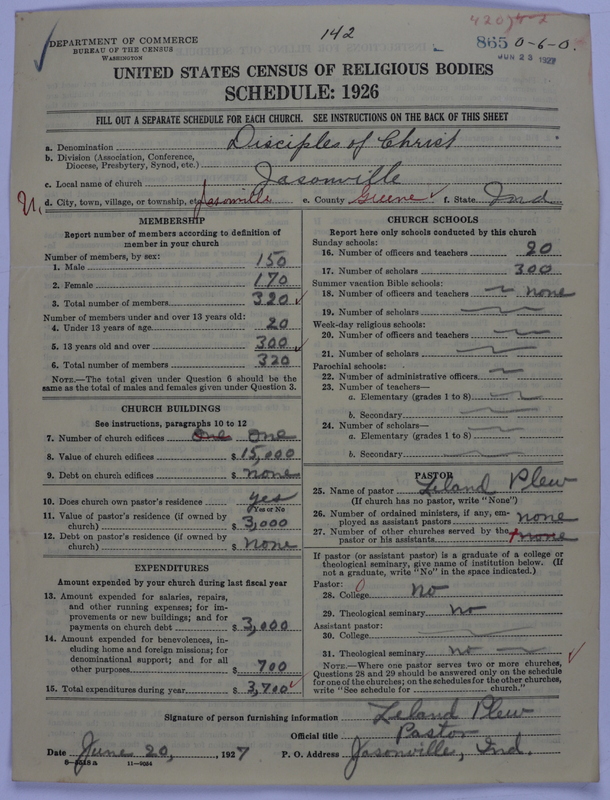 142
4207-2
DEPARTMENT OF COMMERCE
BUREAU OF THE CENSUS
WASHINGTON
865 0-6-0.
JUN 23 1927
UNITED STATES CENSUS OF RELIGIOUS BODIES
SCHEDULE: 1926
FILL OUT A SEPARATE SCHEDULE FOR EACH CHURCH. SEE INSTRUCTIONS ON THE BACK OF THIS SHEET
a. Denomination Disciples of Christ
b. Division (Association, Conference,
Diocese, Presbytery, Synod, etc.)
c. Local name of church Jasonville
d. City, town, village, or township, etc. Jasonville e. County Greene f. State Ind
MEMBERSHIP
Report number of members according to definition of
member in your church
Number of members, by sex:
1. Male 150
2. Female 170
3. Total number of members 320
Number of members under and over 13 years old:
4. Under 13 years of age 20
5. 13 years old and over 300
6. Total number of members 320
NOTE.—The total given under Question 6 should be the
same as the total of males and females given under Question 3.
CHURCH BUILDINGS
See instructions, paragraphs 10 to 12
7. Number of church edifices One one
8. Value of church edifices $ 15,000
9. Debt on church edifices $ none
10. Does church own pastor's residence yes
Yes or No
11. Value of pastor's residence (if owned by
church) $ 3,000
12. Debt on pastor's residence (if owned by
church) $ none
EXPENDITURES
Amount expended by your church during last fiscal year
13. Amount expended for salaries, repairs,
and other running expenses; for im-
provements or new buildings; and for
payments on church debt $ 3,000
14. Amount expended for benevolences, in-
cluding home and foreign missions; for
denominational support; and for all
other purposes $ 700
15. Total expenditures during year $ 3,700
CHURCH SCHOOLS
Report here only schools conducted by this church
Sunday schools:
16. Number of officers and teachers 20
17. Number of scholars 300
Summer vacation Bible schools:
18. Number of officers and teachers none
19. Number of scholars
Week-day religious schools:
20. Number of officers and teachers
21. Number of scholars
Parochial schools:
22. Number of administrative officers
23. Number of teachers—
a. Elementary (grades 1 to 8)
b. Secondary
24. Number of scholars—
a. Elementary (grades 1 to 8)
b. Secondary
PASTOR
25. Name of pastor Leland Plew
(If church has no pastor, write "None")
26. Number of ordained ministers, if any, em-
ployed as assistant pastors none
27. Number of other churches served by the
pastor or his assistants none
If pastor (or assistant pastor) is a graduate of a college or
theological seminary, give name of institution below. (If
not a graduate, write "No" in the space indicated.)
Pastor:
28. College no
29. Theological seminary no
Assistant pastor:
30. College
31. Theological seminary no
NOTE.—Where one pastor serves two or more churches,
Questions 28 and 29 should be answered only on the schedule
for one of the churches; on the schedules for the other churches,
write "See schedule for church."
Signature of person furnishing information Leland Plew
Official title Pastor
Date June 20, 1927 P. O. Address Jasonville, Ind.
8-5518a 11-9034